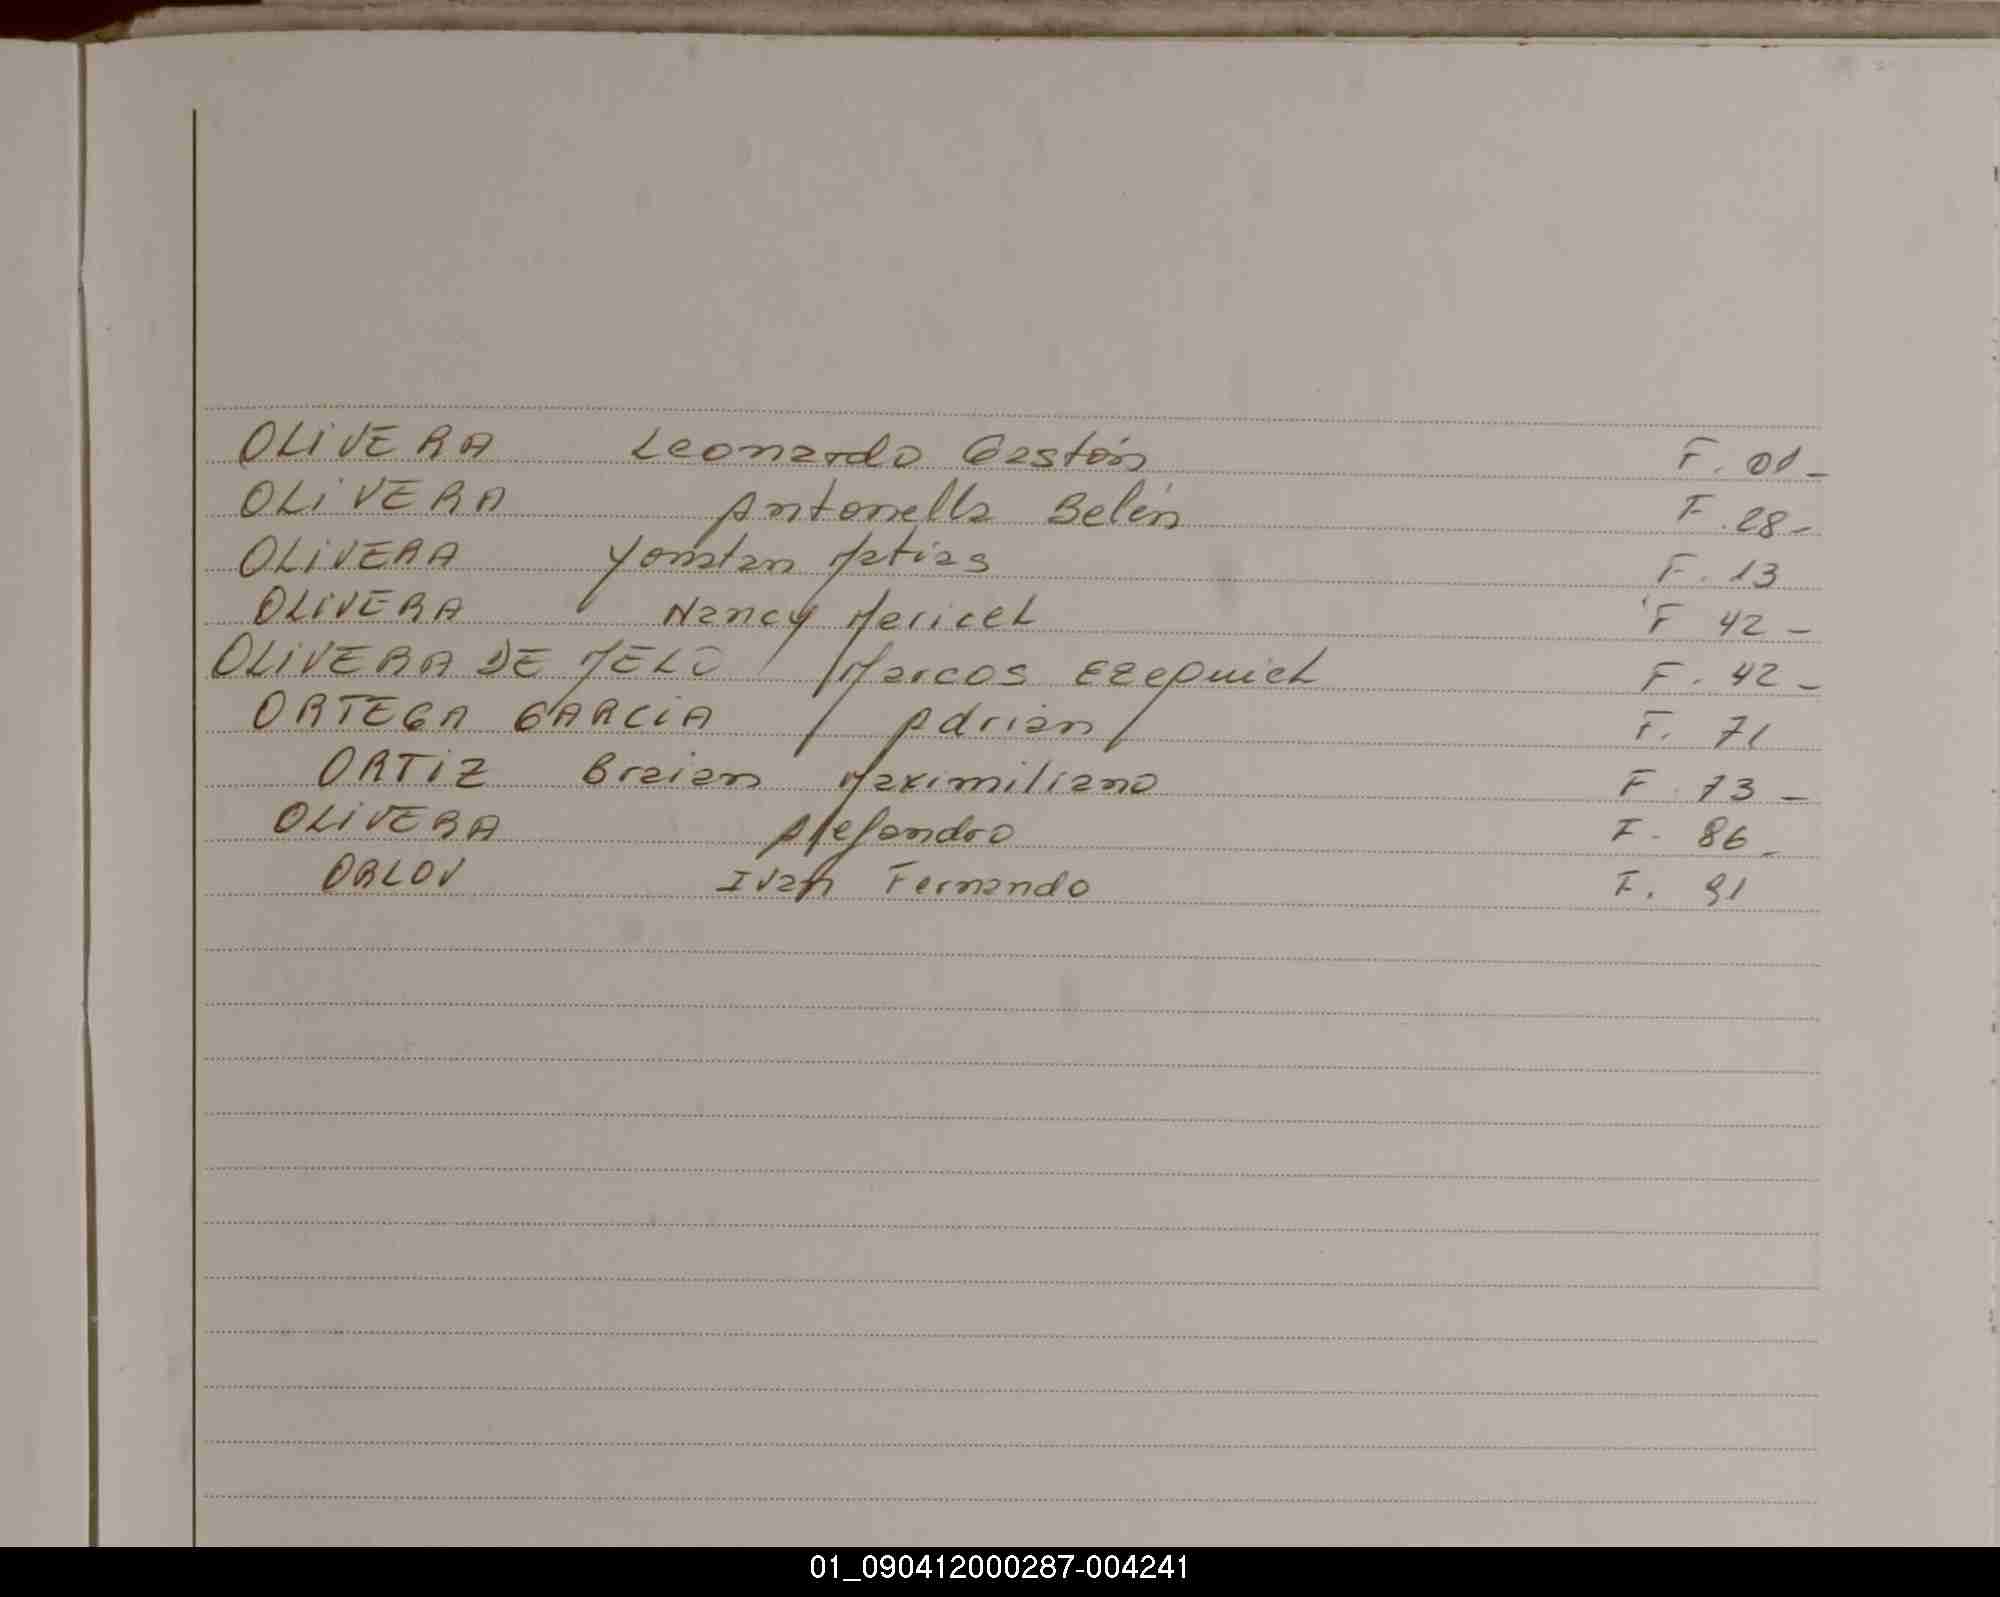 OLIVERA Leonardo Gastón F. 01-
OLIVERA Antonella Belén F. 28-
OLIVERA Yonatan Matias F. 13
OLIVERA Nancy Maricel F 42 -
OLIVERA DE MELO Marcos Ezequiel F. 42 -
ORTEGA GARCIA Adrian F. 71
ORTIZ Braian Maximiliano F 73 -
OLIVERA Alejandro F. 86-
ORLOV Ivan Fernando F. 91
01_090412000287-004241